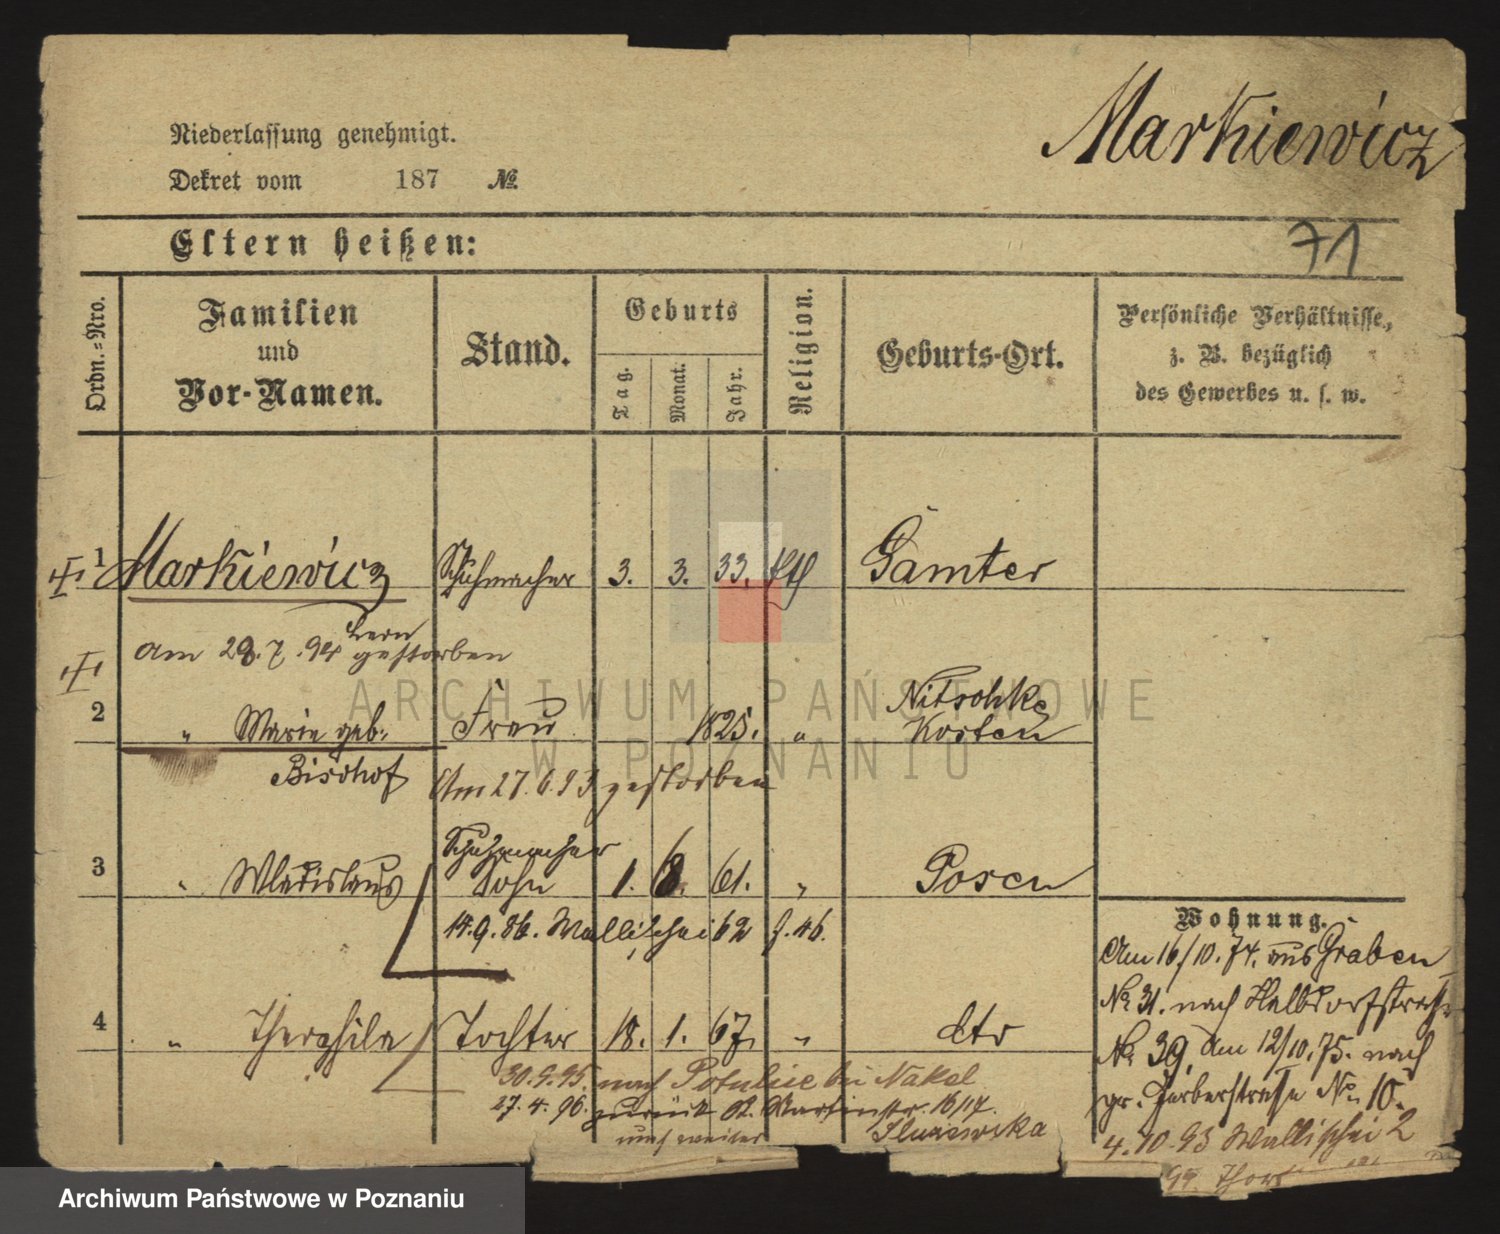 Markiewicz
Niederlassung genehmigt.
Dekret vom 187 №
Eltern heißen:
71
Ordn.-Nro.
Familien und Vor-Namen.
Stand.
Geburts
Tag.
Monat.
Jahr.
Religion.
Geburts-Ort.
Persönliche Verhältnisse,
z. B. bezüglich
des Gewerbes u. s. w.
1 Markiewicz Schuhmacher 3. 3. 33. kth Samter
Am 28.7.94 gestorben
2 " Marie geb. Frau 1825. " Nitschke Kosten
Bischof Am 27.6.93 gestorben
3 " Wladislaus Schuhmacher Sohn 1. 6. 61. " Posen
14.9.86. Wallischei 62 f. 46.
4 " Theophila Tochter 18. 1. 67. " dto
30.9.95. nach Potulice bei Nakel
27.4.96. zurück St. Martinstr. 16/17.
und weiter
Wohnung.
Am 16/10.74. aus Graben
No 31. nach Halbdorfstrasse
No 39. Am 12/10.75. nach
gr. Gerberstrasse No. 10.
4.10.93 Wallischei 2
ARCHIWUM PAŃSTWOWE
W POZNANIU
Archiwum Państwowe w Poznaniu